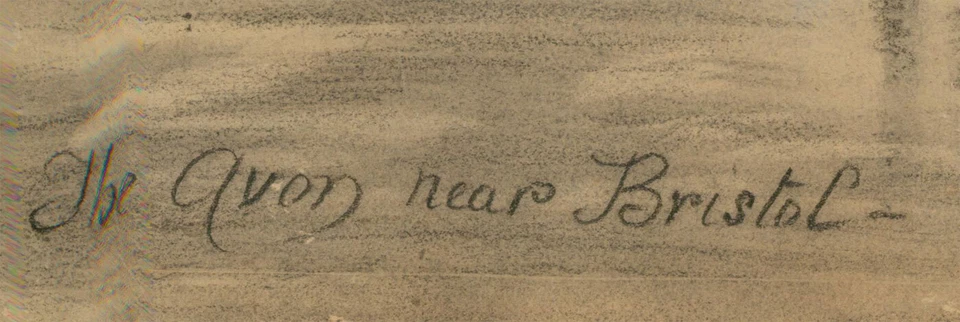 The Avon near Bristol -